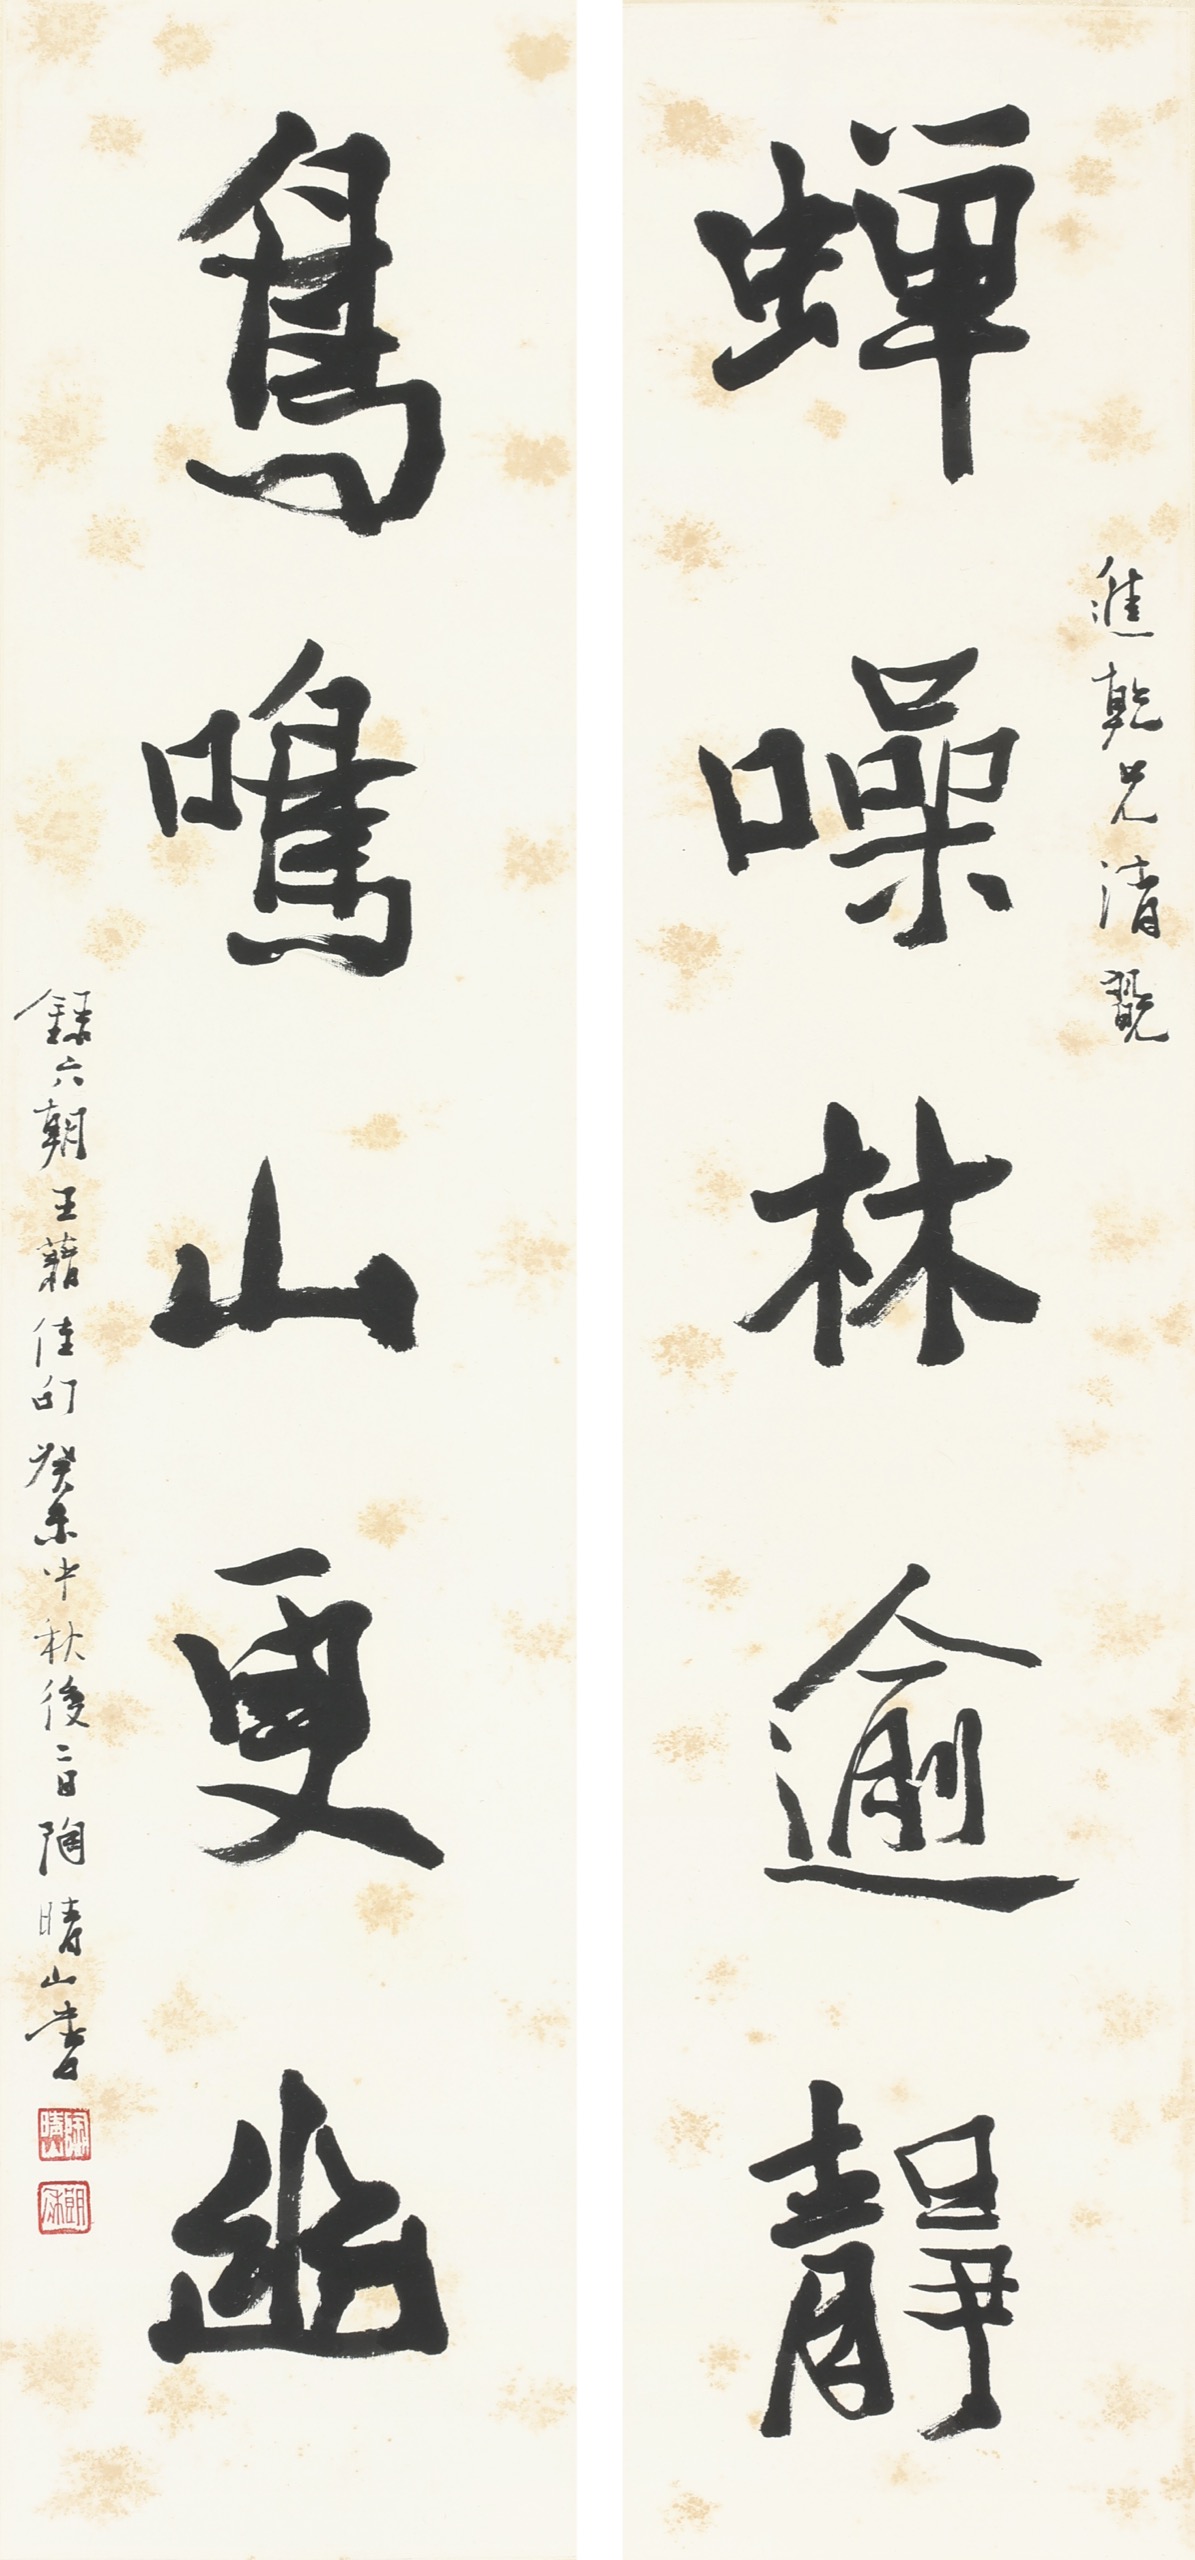 進乾兄清翫
蟬噪林逾靜
鳥鳴山更幽
錄六朝王藉佳句癸未中秋後二日陶晴山書
陶晴山